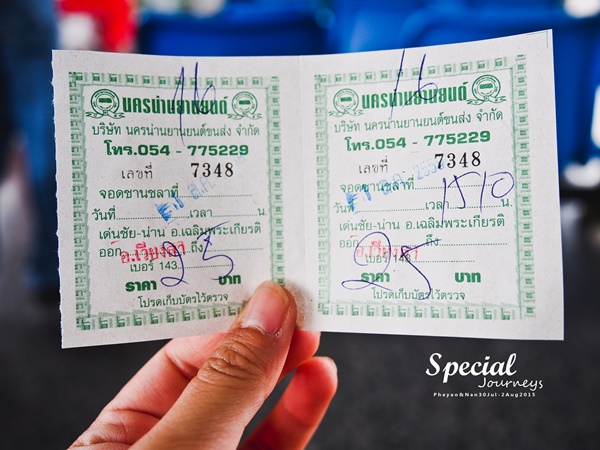 นครน่านยานยนต์
บริษัท นครน่านยานยนต์ขนส่ง จำกัด
โทร.054 - 775229
เลขที่ 7348
จอดชานชลาที่
วันที่ เวลา น.
เด่นชัย-น่าน อ.เฉลิมพระเกียรติ
ออก อ.เวียงสา ถึง
เบอร์ 143 25
ราคา บาท
โปรดเก็บบัตรไว้ตรวจ
นครน่านยานยนต์
บริษัท นครน่านยานยนต์ขนส่ง จำกัด
โทร.054 - 775229
เลขที่ 7348
จอดชานชลาที่
วันที่ เวลา 1510 น.
เด่นชัย-น่าน อ.เฉลิมพระเกียรติ
ออก อ.เวียงสา ถึง
เบอร์ 143 25
ราคา บาท
โปรดเก็บบัตรไว้ตรวจ
Special
Journeys
Phayao&Nan30Jul-2Aug2015